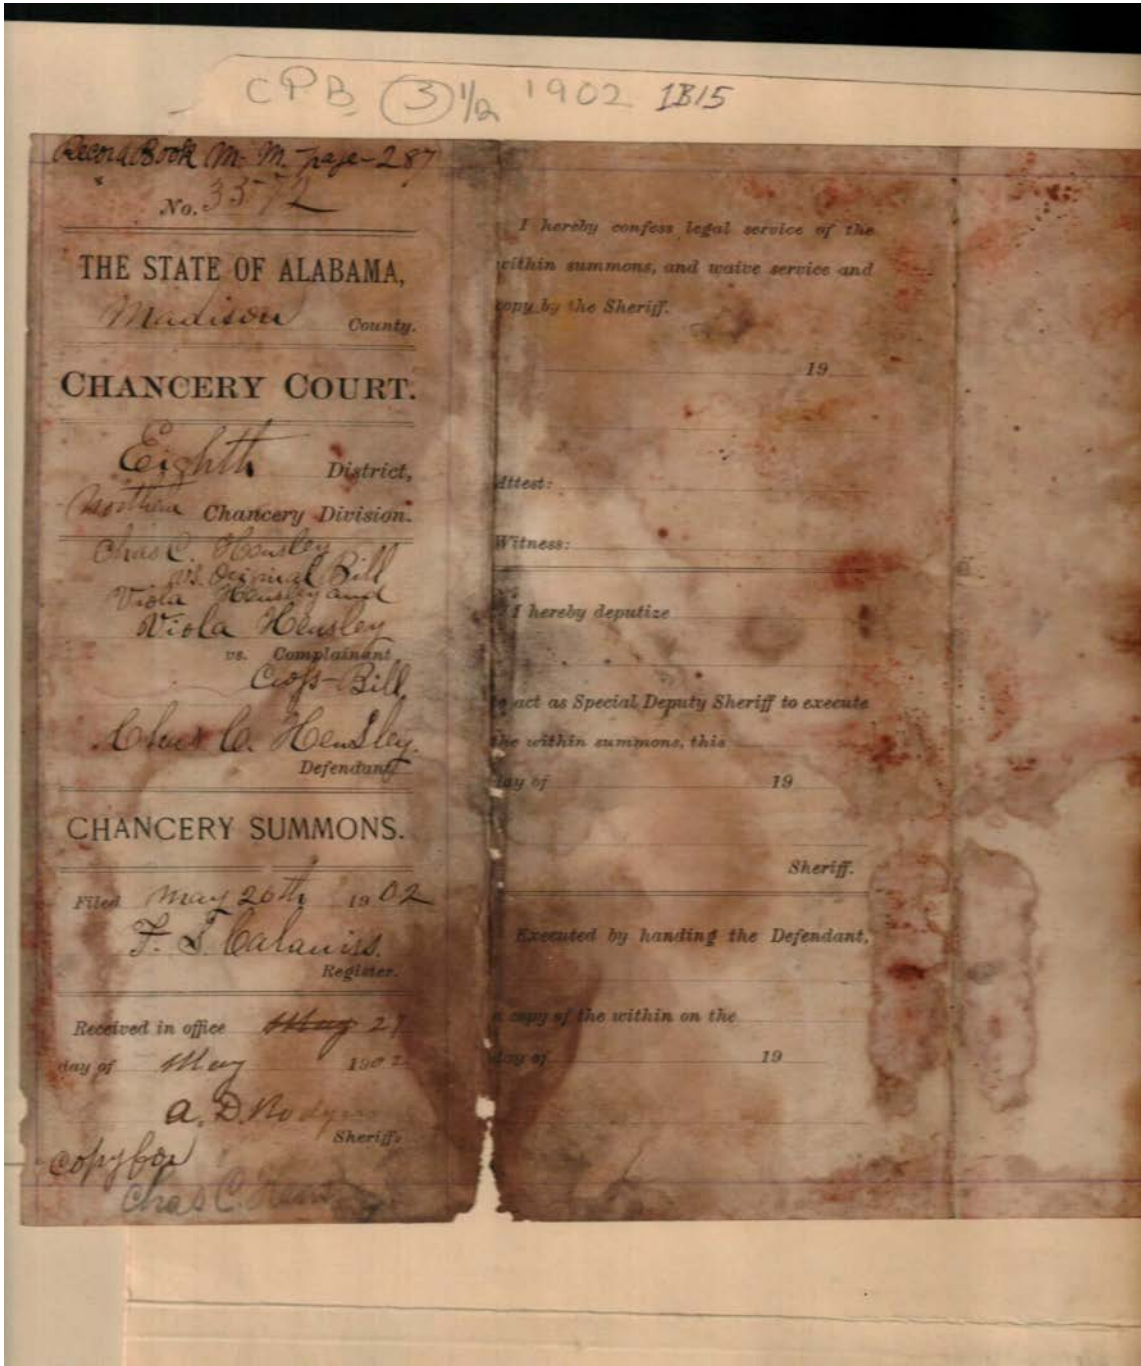 CPB (3) 1/2 1902 1B15
Record Book M. M. page-287
No. 3372
THE STATE OF ALABAMA,
Madison County.
CHANCERY COURT.
Eighth District,
Northern Chancery Division.
Chas C. Hensley
vs. Original Bill
Viola Hensley and
Viola Hensley
vs. Complainant
Cross-Bill,
Chas C. Hensley.
Defendant
CHANCERY SUMMONS.
Filed May 26th 1902
Register.
Received in office May 27
day of May 1902
A. D. Rodgers
Sheriff.
copy for
Chas C.
I hereby confess legal service of the
within summons, and waive service and
copy by the Sheriff.
19
Attest:
Witness:
I hereby deputize
to act as Special Deputy Sheriff to execute
the within summons, this
day of 19
Sheriff.
Executed by handing the Defendant,
a copy of the within on the
day of 19